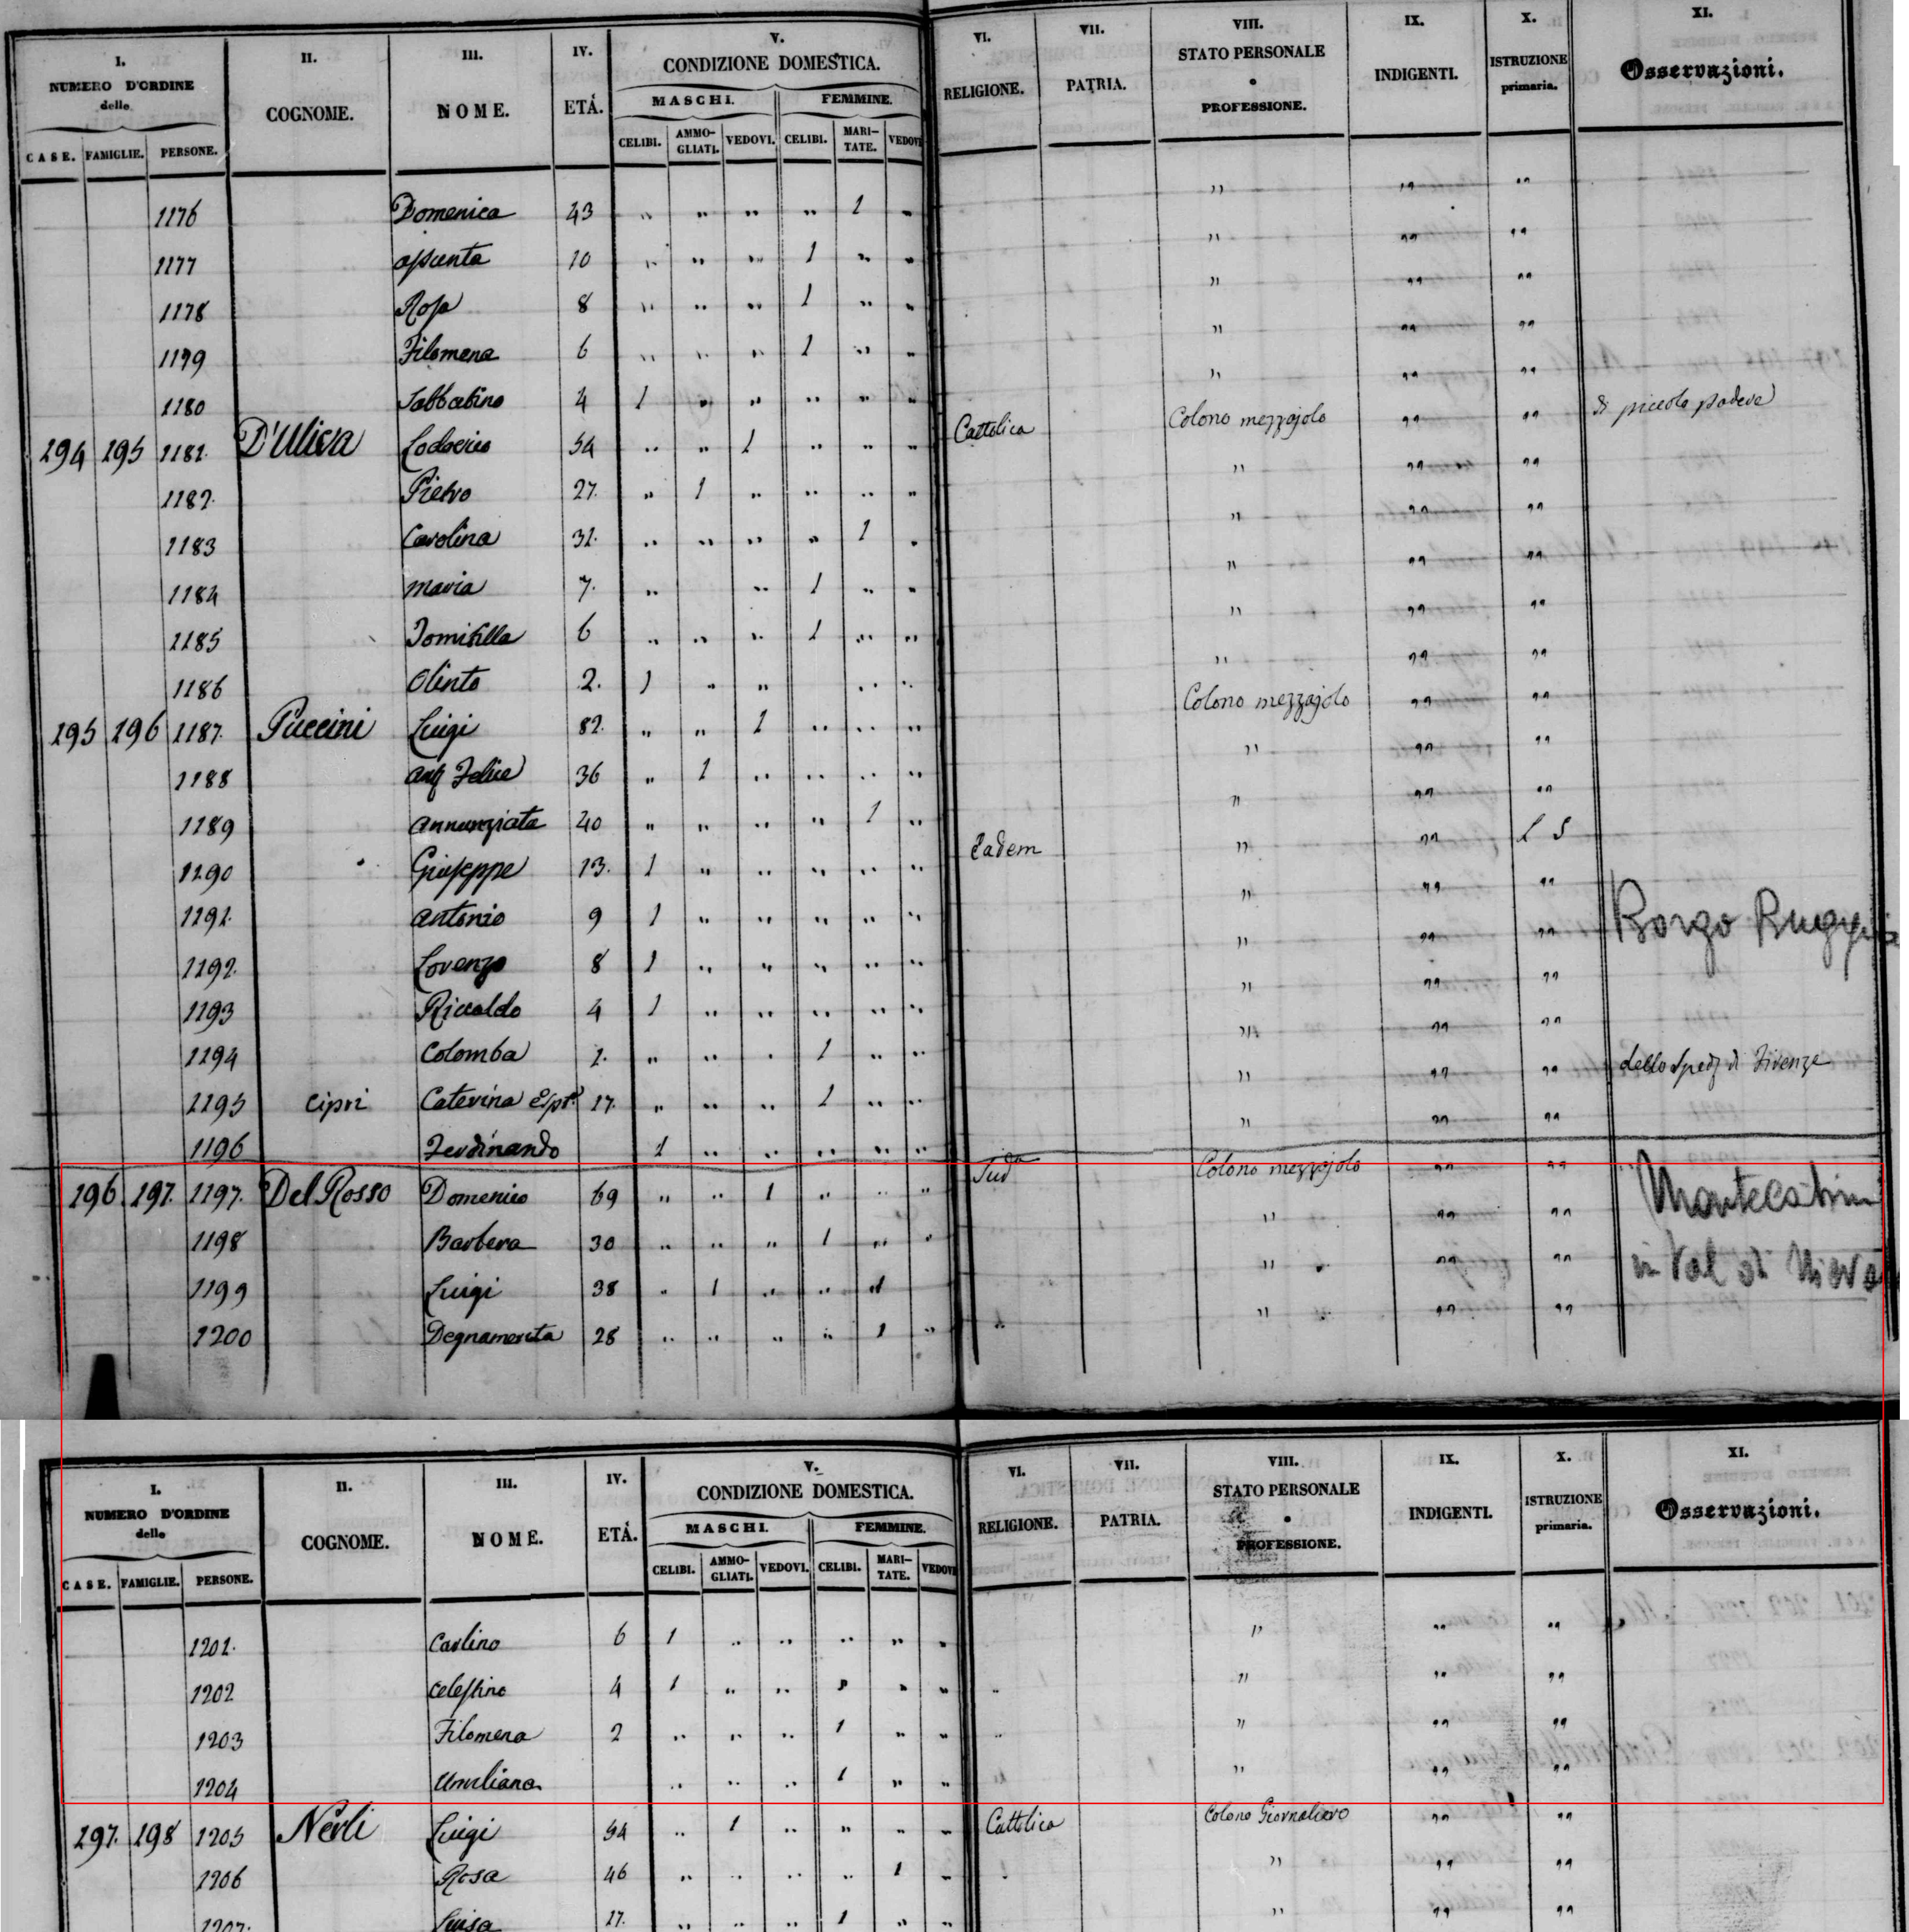 I. II. III. IV. V. VI. VII. VIII. IX. X. XI.
NUMERO D'ORDINE delle COGNOME. NOME. ETÁ. CONDIZIONE DOMESTICA. RELIGIONE. PATRIA. STATO PERSONALE o PROFESSIONE. INDIGENTI. ISTRUZIONE primaria. Osservazioni.
MASCHI. FEMMINE.
CASE. FAMIGLIE. PERSONE. CELIBI. AMMO-GLIATI. VEDOVI. CELIBI. MARI-TATE. VEDOV
1176 Domenica 43 " " " " 1 " " " "
1177 Assunta 10 " " " 1 " " " " "
1178 Rosa 8 " " " 1 " " " " "
1179 Filomena 6 " " " 1 " " " " "
1180 Sabbatino 4 1 " " " " " " " "
294 195 1181. D'Uliva Lodovico 54 " " 1 " " " Cattolica Colono mezzajolo " " di piccolo podere
1182. Pietro 27. " 1 " " " " " " "
1183 Carolina 32. " " " " 1 " " " "
1184 Maria 7. " " 1 " " " " "
1185 Domitilla 6 " " " 1 " " " " "
1186 Olinto 2. 1 " " " " " " "
195 196 1187. Puccini Luigi 82. " " 1 " " " Colono mezzajolo " "
1188 Ang Felice 36 " 1 " " " " " " "
1189 Annunziata 40 " " " " 1 " " " "
1190 Giuseppe 13. 1 " " " " " Eadem " " L S
1191. Antonio 9 1 " " " " " " " "
1192. Lorenzo 8 1 " " " " " " " " Borgo
1193 Riccaldo 4 1 " " " " " " " "
1194 Colomba 1. " " " 1 " " " " "
1195 Cipri Caterina Esp. 17. " " " 1 " " " " " dello Sped di Firenze
1196 Ferdinando 1 " " " " " " " "
196 197. 1197. Del Rosso Domenico 69 " " 1 " " " Sudª Colono mezzajolo " " Montecatini
1198 Barbera 30 " " " 1 " " " " "
1199 Luigi 38 " 1 " " " " " " in Val di
1200 Degnamerita 28 " " " " 1 " " " "
I. II. III. IV. V. VI. VII. VIII. IX. X. XI.
NUMERO D'ORDINE delle COGNOME. NOME. ETÁ. CONDIZIONE DOMESTICA. RELIGIONE. PATRIA. STATO PERSONALE o PROFESSIONE. INDIGENTI. ISTRUZIONE primaria. Osservazioni.
MASCHI. FEMMINE.
CASE. FAMIGLIE. PERSONE. CELIBI. AMMO-GLIATI. VEDOVI. CELIBI. MARI-TATE. VEDOV
1201. Carlino 6 1 " " " " " " " "
1202 Celestino 4 1 " " " " " " " " "
1203 Filomena 2 " " " 1 " " " " " "
1204 Umiliana " " " 1 " " " " "
297. 198 1205 Nerli Luigi 54 " 1 " " " " Cattolica Colono Giornaliero " "
1206 Rosa 46 " " " " 1 " " " "
1207. Luisa 17. " " " 1 " " " " "